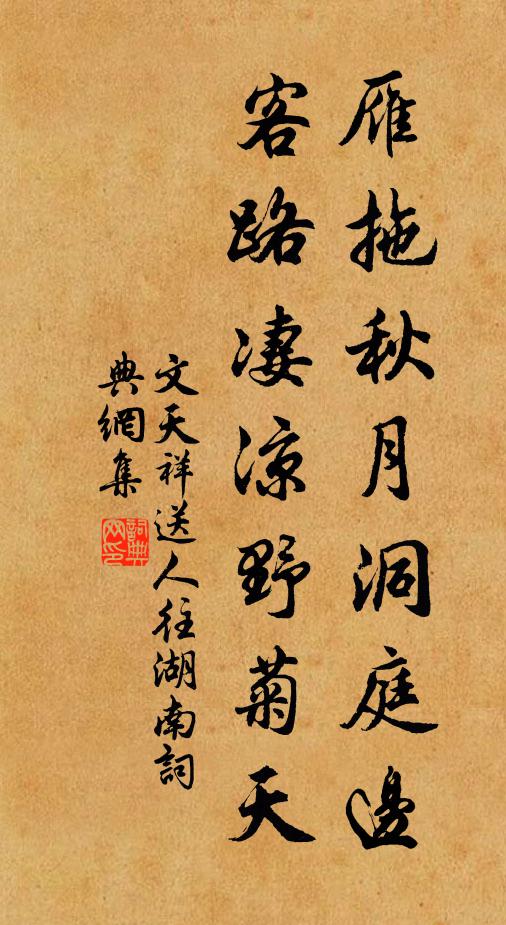 雁拖秋月洞庭邊
客路凄涼野菊天
文天祥送人往湖南詞
典網集
詞典网印